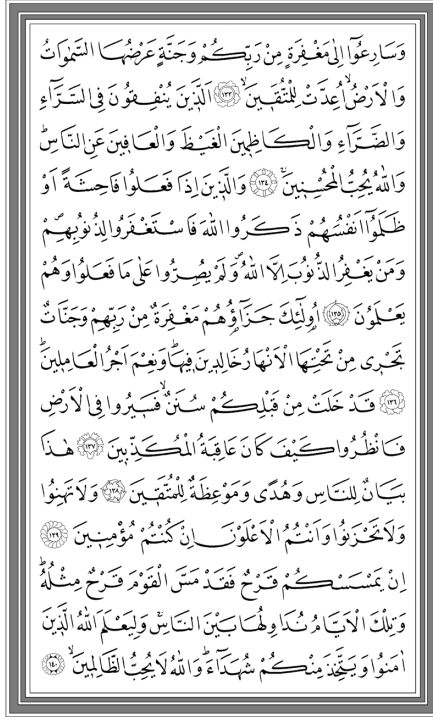 وَسَارِعُٓوا اِلٰى مَغْفِرَةٍ مِنْ رَبِّكُمْ وَجَنَّةٍ عَرْضُهَا السَّمٰوَاتُ
وَالْاَرْضُۙ اُعِدَّتْ لِلْمُتَّق۪ينَۙ ﴿١٣٣﴾ اَلَّذ۪ينَ يُنْفِقُونَ فِي السَّرَّٓاءِ
وَالضَّرَّٓاءِ وَالْكَاظِم۪ينَ الْغَيْظَ وَالْعَاف۪ينَ عَنِ النَّاسِۜ
وَاللّٰهُ يُحِبُّ الْمُحْسِن۪ينَۚ ﴿١٣٤﴾ وَالَّذ۪ينَ اِذَا فَعَلُوا فَاحِشَةً اَوْ
ظَلَمُٓوا اَنْفُسَهُمْ ذَكَرُوا اللّٰهَ فَاسْتَغْفَرُوا لِذُنُوبِهِمْۖ
وَمَنْ يَغْفِرُ الذُّنُوبَ اِلَّا اللّٰهُۖ وَلَمْ يُصِرُّوا عَلٰى مَا فَعَلُوا وَهُمْ
يَعْلَمُونَ ﴿١٣٥﴾ اُو۬لٰٓئِكَ جَزَٓاؤُ۬هُمْ مَغْفِرَةٌ مِنْ رَبِّهِمْ وَجَنَّاتٌ
تَجْر۪ي مِنْ تَحْتِهَا الْاَنْهَارُ خَالِد۪ينَ ف۪يهَاۜ وَنِعْمَ اَجْرُ الْعَامِل۪ينَۜ
﴿١٣٦﴾ قَدْ خَلَتْ مِنْ قَبْلِكُمْ سُنَنٌۙ فَس۪يرُوا فِي الْاَرْضِ
فَانْظُرُوا كَيْفَ كَانَ عَاقِبَةُ الْمُكَذِّب۪ينَ ﴿١٣٧﴾ هٰذَا
بَيَانٌ لِلنَّاسِ وَهُدًى وَمَوْعِظَةٌ لِلْمُتَّق۪ينَ ﴿١٣٨﴾ وَلَا تَهِنُوا
وَلَا تَحْزَنُوا وَاَنْتُمُ الْاَعْلَوْنَ اِنْ كُنْتُمْ مُؤْمِن۪ينَ ﴿١٣٩﴾
اِنْ يَمْسَسْكُمْ قَرْحٌ فَقَدْ مَسَّ الْقَوْمَ قَرْحٌ مِثْلُهُۜ
وَتِلْكَ الْاَيَّامُ نُدَاوِلُهَا بَيْنَ النَّاسِۚ وَلِيَعْلَمَ اللّٰهُ الَّذ۪ينَ
اٰمَنُوا وَيَتَّخِذَ مِنْكُمْ شُهَدَٓاءَۜ وَاللّٰهُ لَا يُحِبُّ الظَّالِم۪ينَۙ ﴿١٤٠﴾